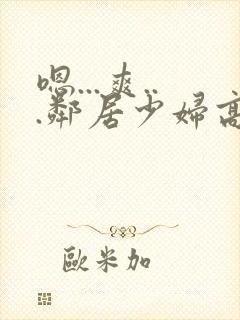 嗯...爽..
.鄰居少婦高
歐米加